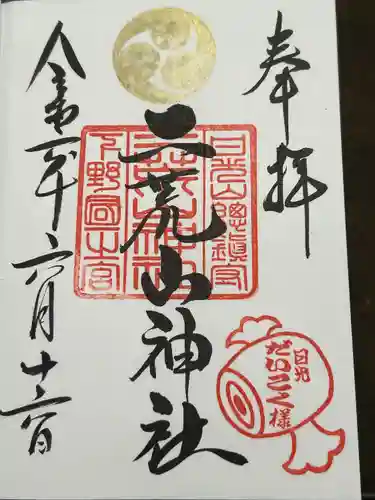 奉拝
二荒山神社
日光山總鎮守
二荒山神社
下野國一之宮
日光
だいこく様
令和二年六月十三日